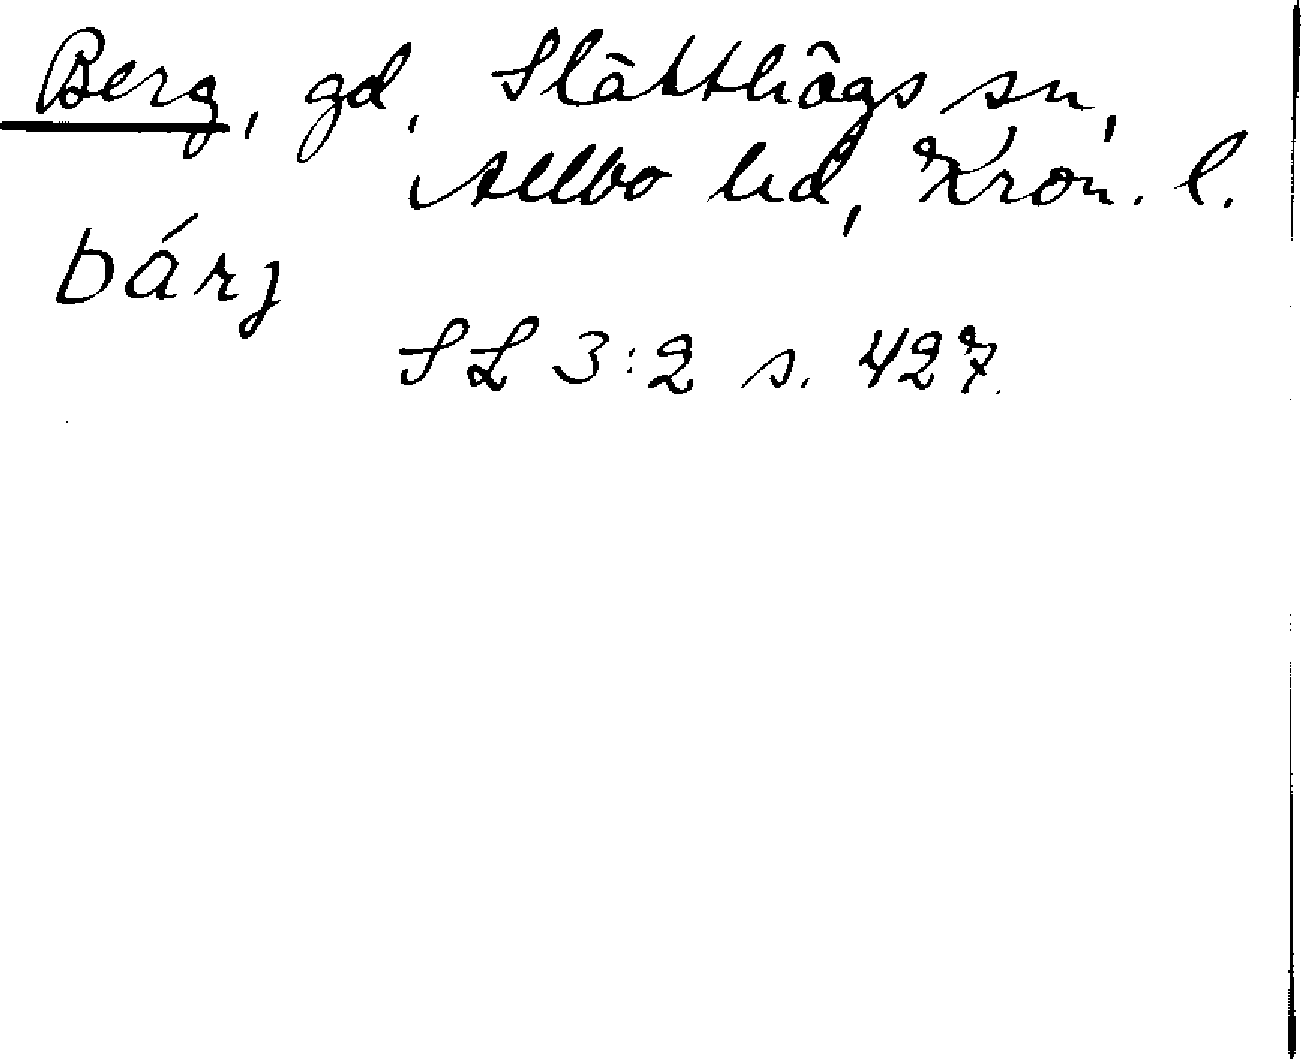 Berg, gd, Slätthögs sn,
Allbo hd, Kron. l.
bárj
SL 3:2 s. 427.